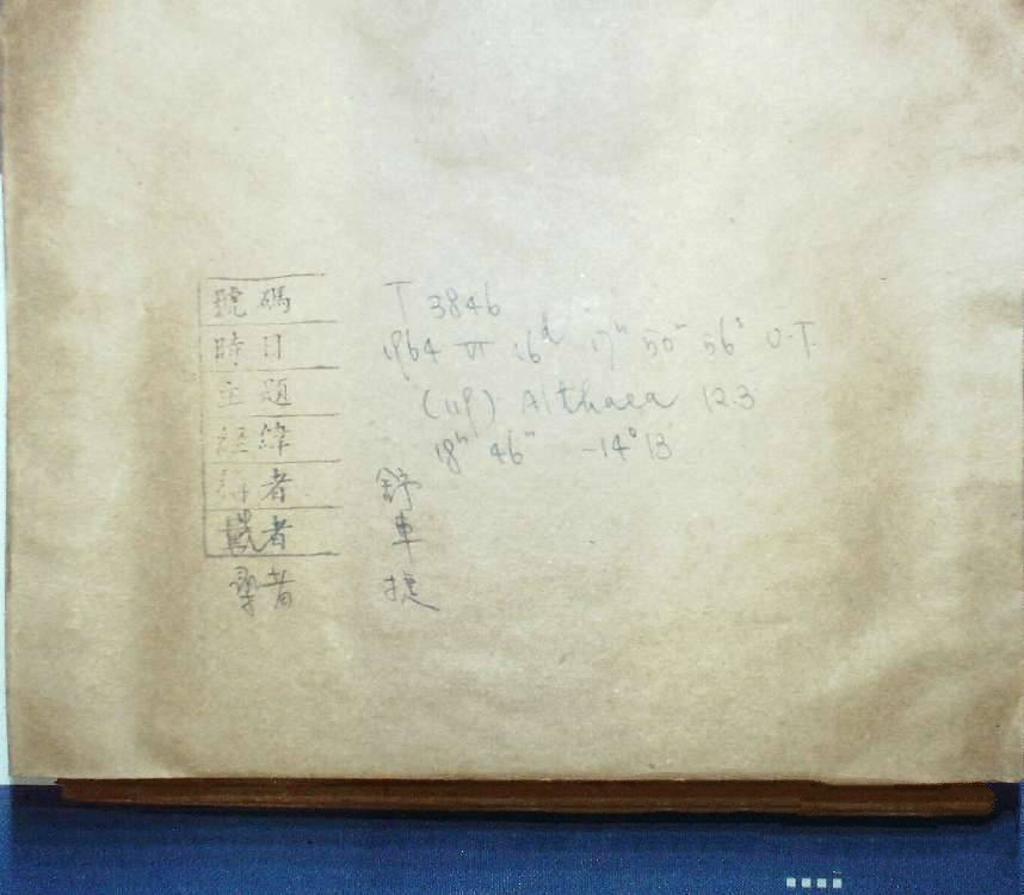 號碼 T 3846
時日 1964 VI 16ᵈ 17ʰ 50ᵐ 56ˢ U.T.
主題 (119) Althaea 12.3
經緯 18ʰ 46ᵐ -14°13
者 舒
者 車
者 捷